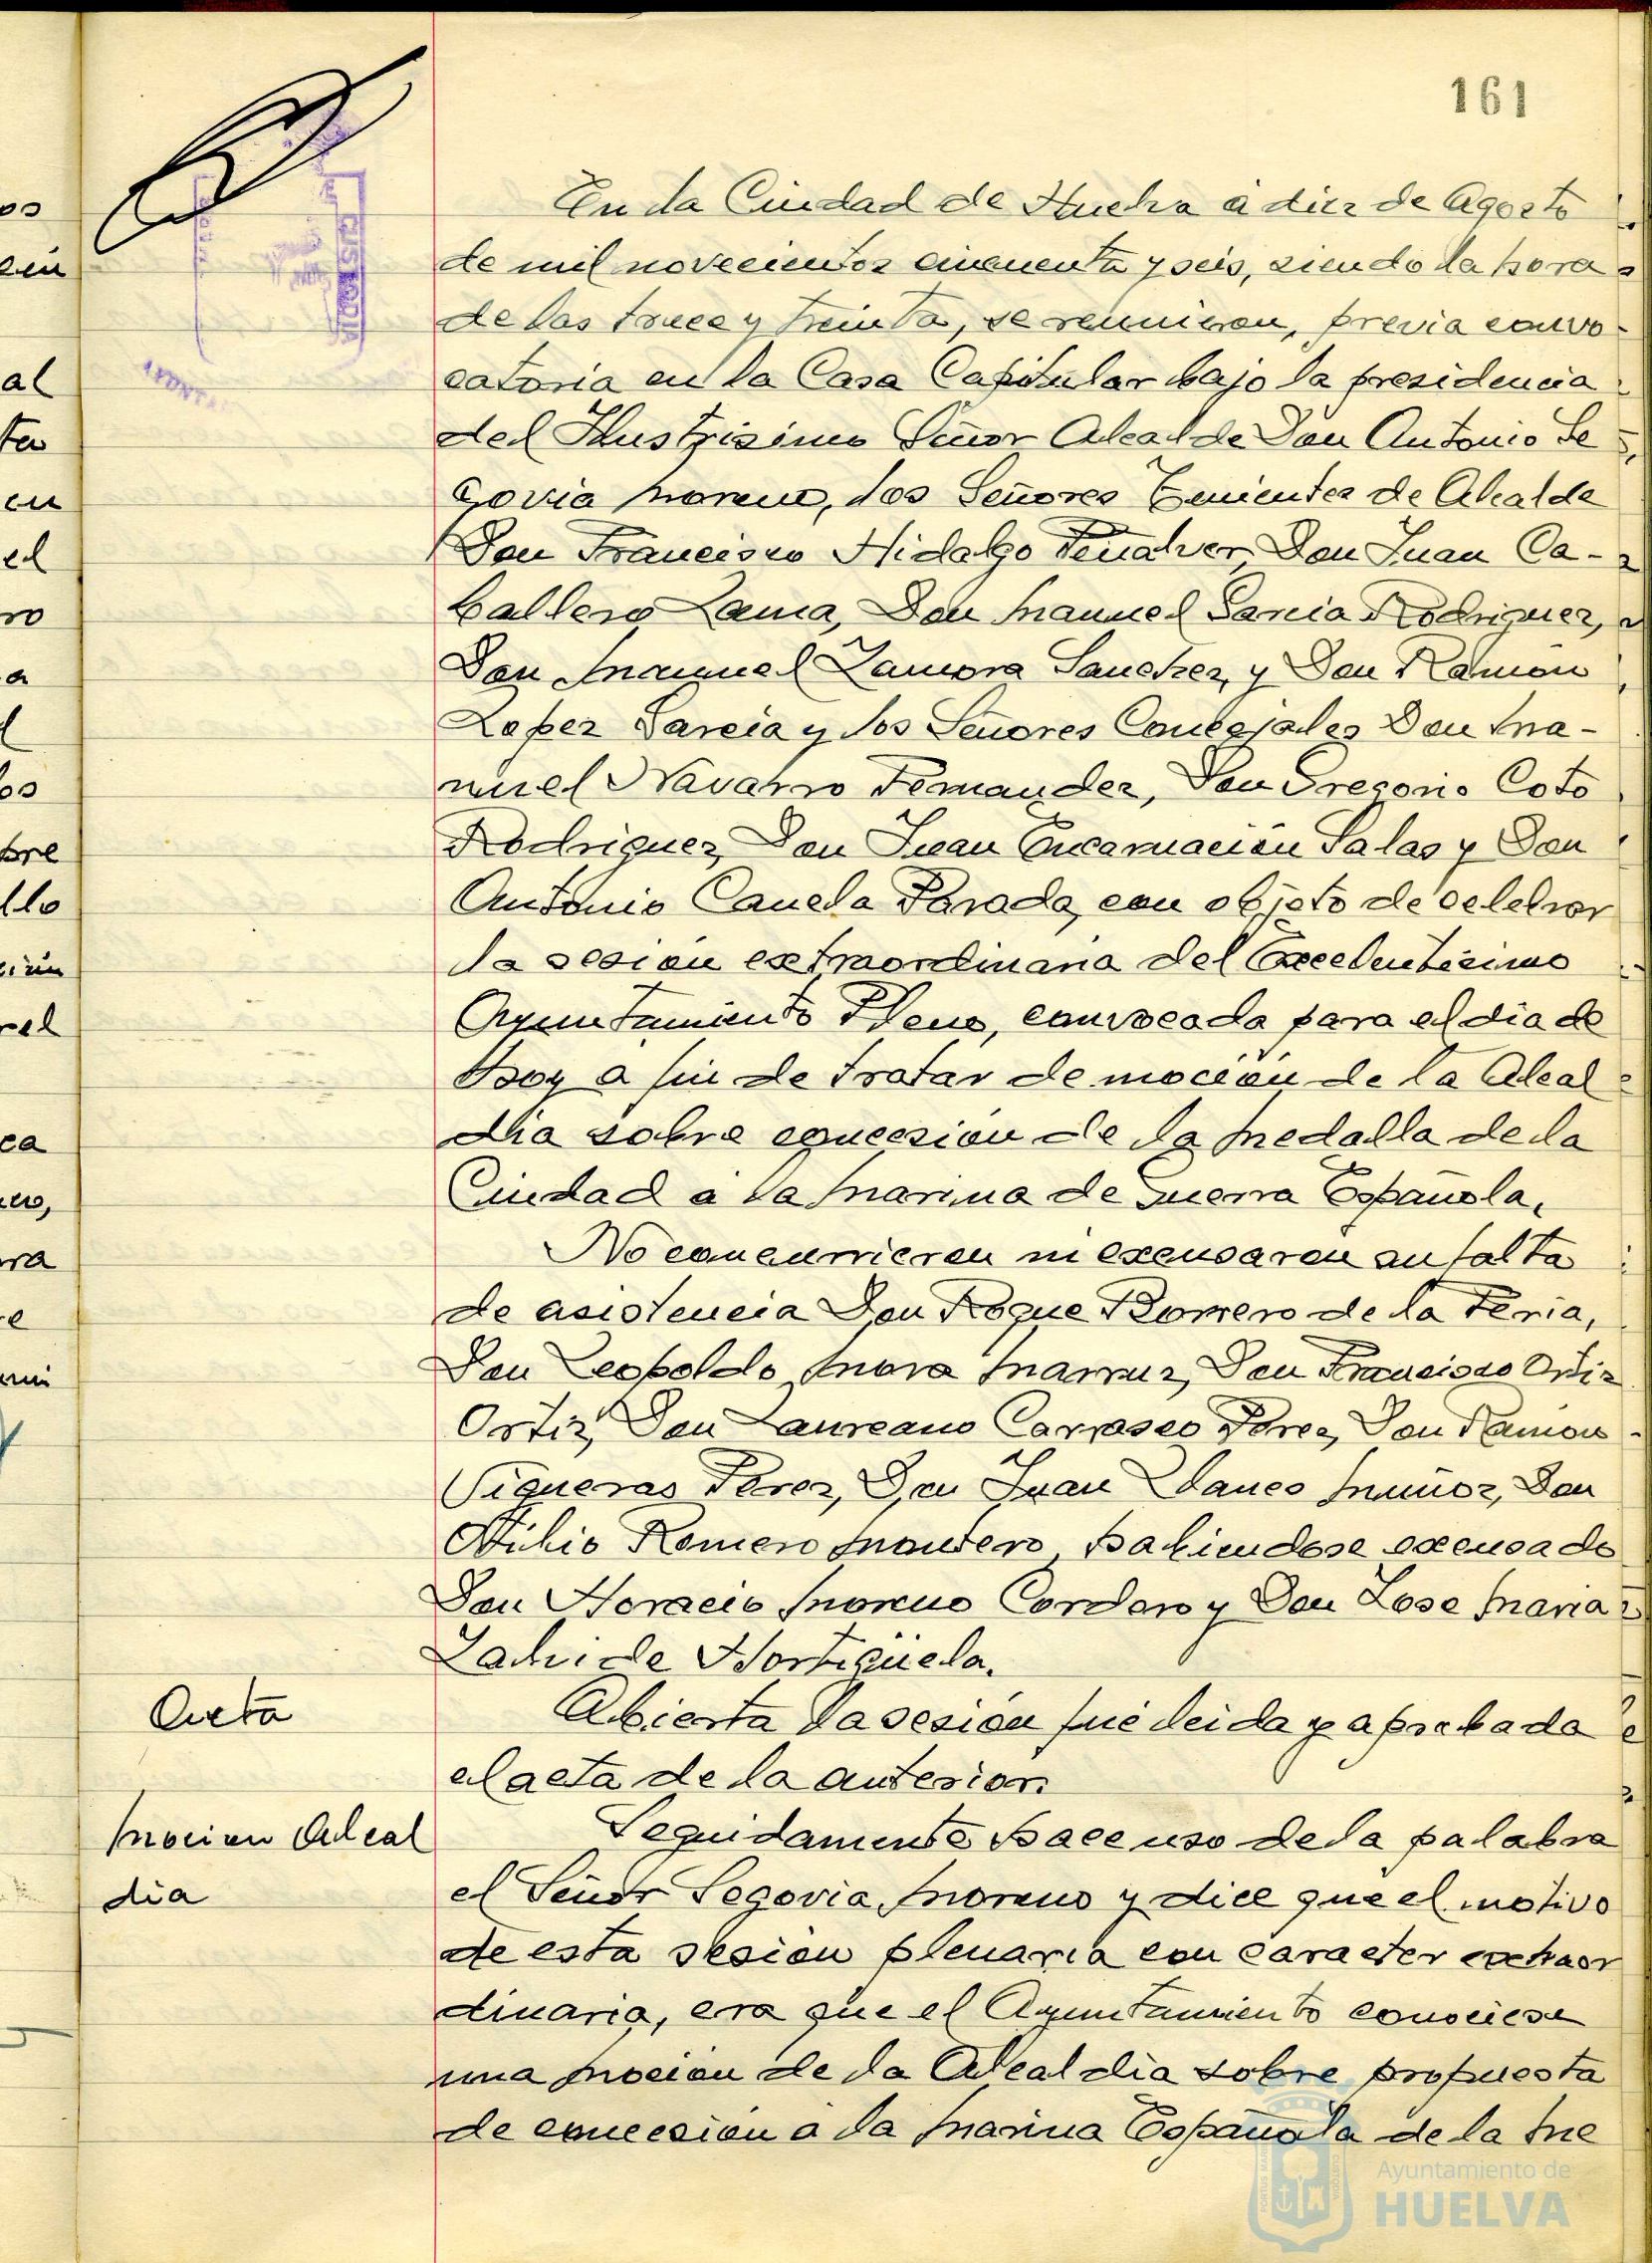 161
En la Ciudad de Huelva a diez de Agosto
de mil novecientos cincuenta y seis, siendo la hora
de las trece y treinta, se reunieron, previa convo-
catoria en la Casa Capitular bajo la presidencia
del Ilustrisimo Señor Alcalde Don Antonio Se
govia Moreno, los Señores Tenientes de Alcalde
Don Francisco Hidalgo Peñalver, Don Juan Ca-
ballero Lama, Don Manuel Garcia Rodriguez,
Don Manuel Zamora Sanchez, y Don Ramón
Lopez Garcia y los Señores Concejales Don Ma-
nuel Navarro Fernandez, Don Gregorio Coto
Rodriguez, Don Juan Encarnación Salas y Don
Antonio Canela Parada, con objeto de celebrar
la sesión extraordinaria del Excelentísimo
Ayuntamiento Pleno, convocada para el dia de
hoy a fin de tratar de moción de la Alcal
dia sobre concesión de la Medalla de la
Ciudad a la Marina de Guerra Española.
No concurrieron ni excusaron su falta
de asistencia Don Roque Borrero de la Feria,
Don Leopoldo Mora Marruz, Don Francisco Ortiz
Ortiz, Don Laureano Carrasco Perez, Don Ramón
Vigueras Perez, Don Juan Llanes Muñoz, Don
Atilio Romero Montero, habiendose excusado
Don Horacio Moreno Cordero y Don Jose Maria
Zahide Hortigüela.
Acta
Abierta la sesión fué leida y aprobada
el acta de la anterior.
Mocion Alcal
dia
Seguidamente hace uso de la palabra
el Señor Segovia Moreno y dice que el motivo
de esta sesión plenaria con caracter extraor
dinaria, era que el Ayuntamiento conociese
una moción de la Alcaldia sobre propuesta
de concesión a la Marina Española de la Me
Ayuntamiento de
HUELVA